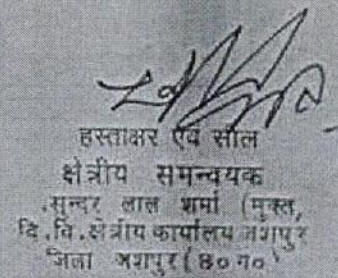 हस्ताक्षर एवं सील
क्षेत्रीय समन्वयक
.सुन्दर लाल शर्मा (मुक्त,
वि.वि.क्षेत्रीय कार्यालय जशपुर
जिला जशपुर (छ०ग०)